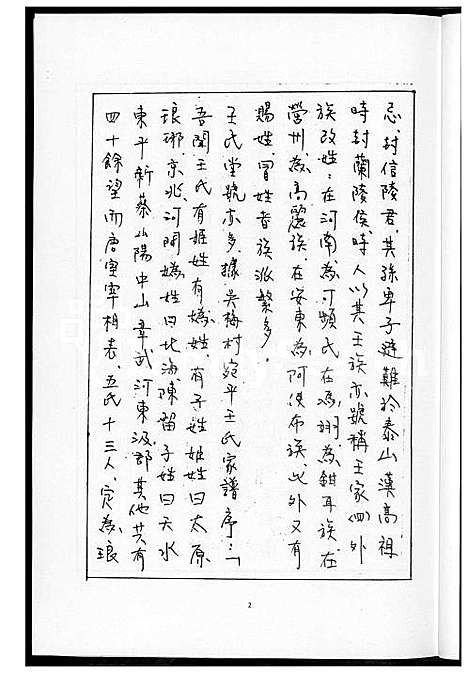 忌、封信陵君、其孫卑子避難於泰山漢高祖
時封蘭陵侯、時人以其王族亦號稱王家(四)外
族改姓：在河南為可頻氏在馮翊為鉗耳族、在
營州為高麗族、在安東為阿佚布族、此外又有
賜姓、冒姓者族派繁多。
王氏堂號亦多、據吳梅村宛平王氏家譜序：「
吾聞王氏有姬姓有媯姓、有子姓姬姓曰太原
琅琊、京兆、河間媯姓曰北海陳留子姓曰天水
東平新蔡山陽中山章武河東汲郡其他共有
四十餘望而唐室宰相表、五氏十三人、定為琅
2